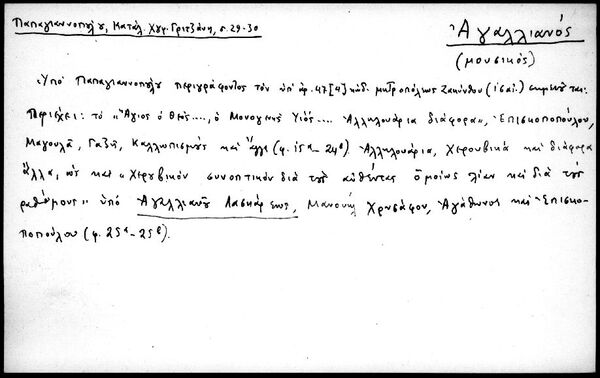 Παπαγιαννοπούλου, Κατάλ. Χγφ. Γριτζάνη, σ. 29-30
Ἀγαλλιανός
(μουσικός)
Ὑπό Παπαγιαννοπούλου περιγράφοντος τόν ὑπ' ἀρ. 47[4] κώδ. μητροπόλεως Ζακύνθου (ιθ΄ αἰ.) σημειοῦται:
Περιέχει: τό "Ἅγιος ὁ Θεός...., ὁ Μονογενής Υἱός.... Ἀλληλουάρια διάφορα", Ἐπισκοποπούλου,
Μαγουλᾶ, Γαζῆ, Καλλωπισμός καί ἄλλα (φ. 15α - 24β) Ἀλληλουάρια, Χερουβικά καί διάφορα
ἄλλα, ὡς καί "Χερουβικόν συνοπτικόν διά τούς αὐθέντας ὁμοίως λίαν καί διά τούς
ραθύμους" ὑπό Ἀγαλλιανοῦ Λασκάρεως, Μανουήλ Χρυσάφου, Ἀγάθωνος καί Ἐπισκο-
ποπούλου (φ. 25α - 25β).